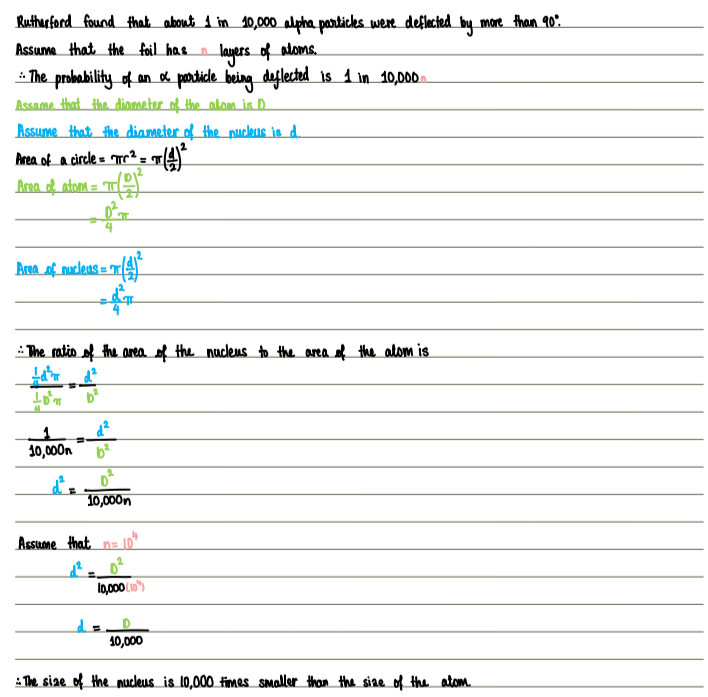 Rutherford found that about 1 in 10,000 alpha particles were deflected by more than 90°.
Assume that the foil has n layers of atoms.
∴ The probability of an α particle being deflected is 1 in 10,000n
Assume that the diameter of the atom is D
Assume that the diameter of the nucleus is d.
Area of a circle = πr² = π(d/2)²
Area of atom = π(D/2)²
= D²/4 π
Area of nucleus = π(d/2)²
= d²/4 π
∴ The ratio of the area of the nucleus to the area of the atom is
(1/4 d²π)/(1/4 D²π) = d²/D²
1/10,000n = d²/D²
d² = D²/10,000n
Assume that n = 10⁴
d² = D²/10,000(10⁴)
d = D/10,000
∴ The size of the nucleus is 10,000 times smaller than the size of the atom.